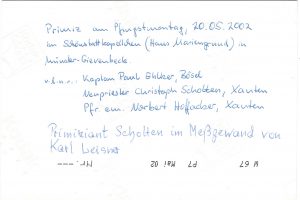 Primiz am Pfingstmontag, 20.05.2002
im Schönstattkapellchen (Haus Mariengrund) in
Münster-Gievenbeck.
v.l.n.r.: Kaplan Paul Ehlker, Zösel
Neupriester Christoph Scholten, Xanten
Pfr. em. Norbert Hoffacker, Xanten
Primiziant Scholten im Meßgewand von
Karl Leisner
M 67 P7 Mai 02 Nr. ----